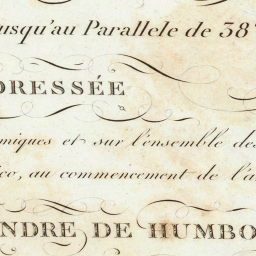 jusqu'au Parallele de 38°
DRESSÉE
miques et sur l'ensemble des
ico, au commencement de l'a
NDRE DE HUMBO